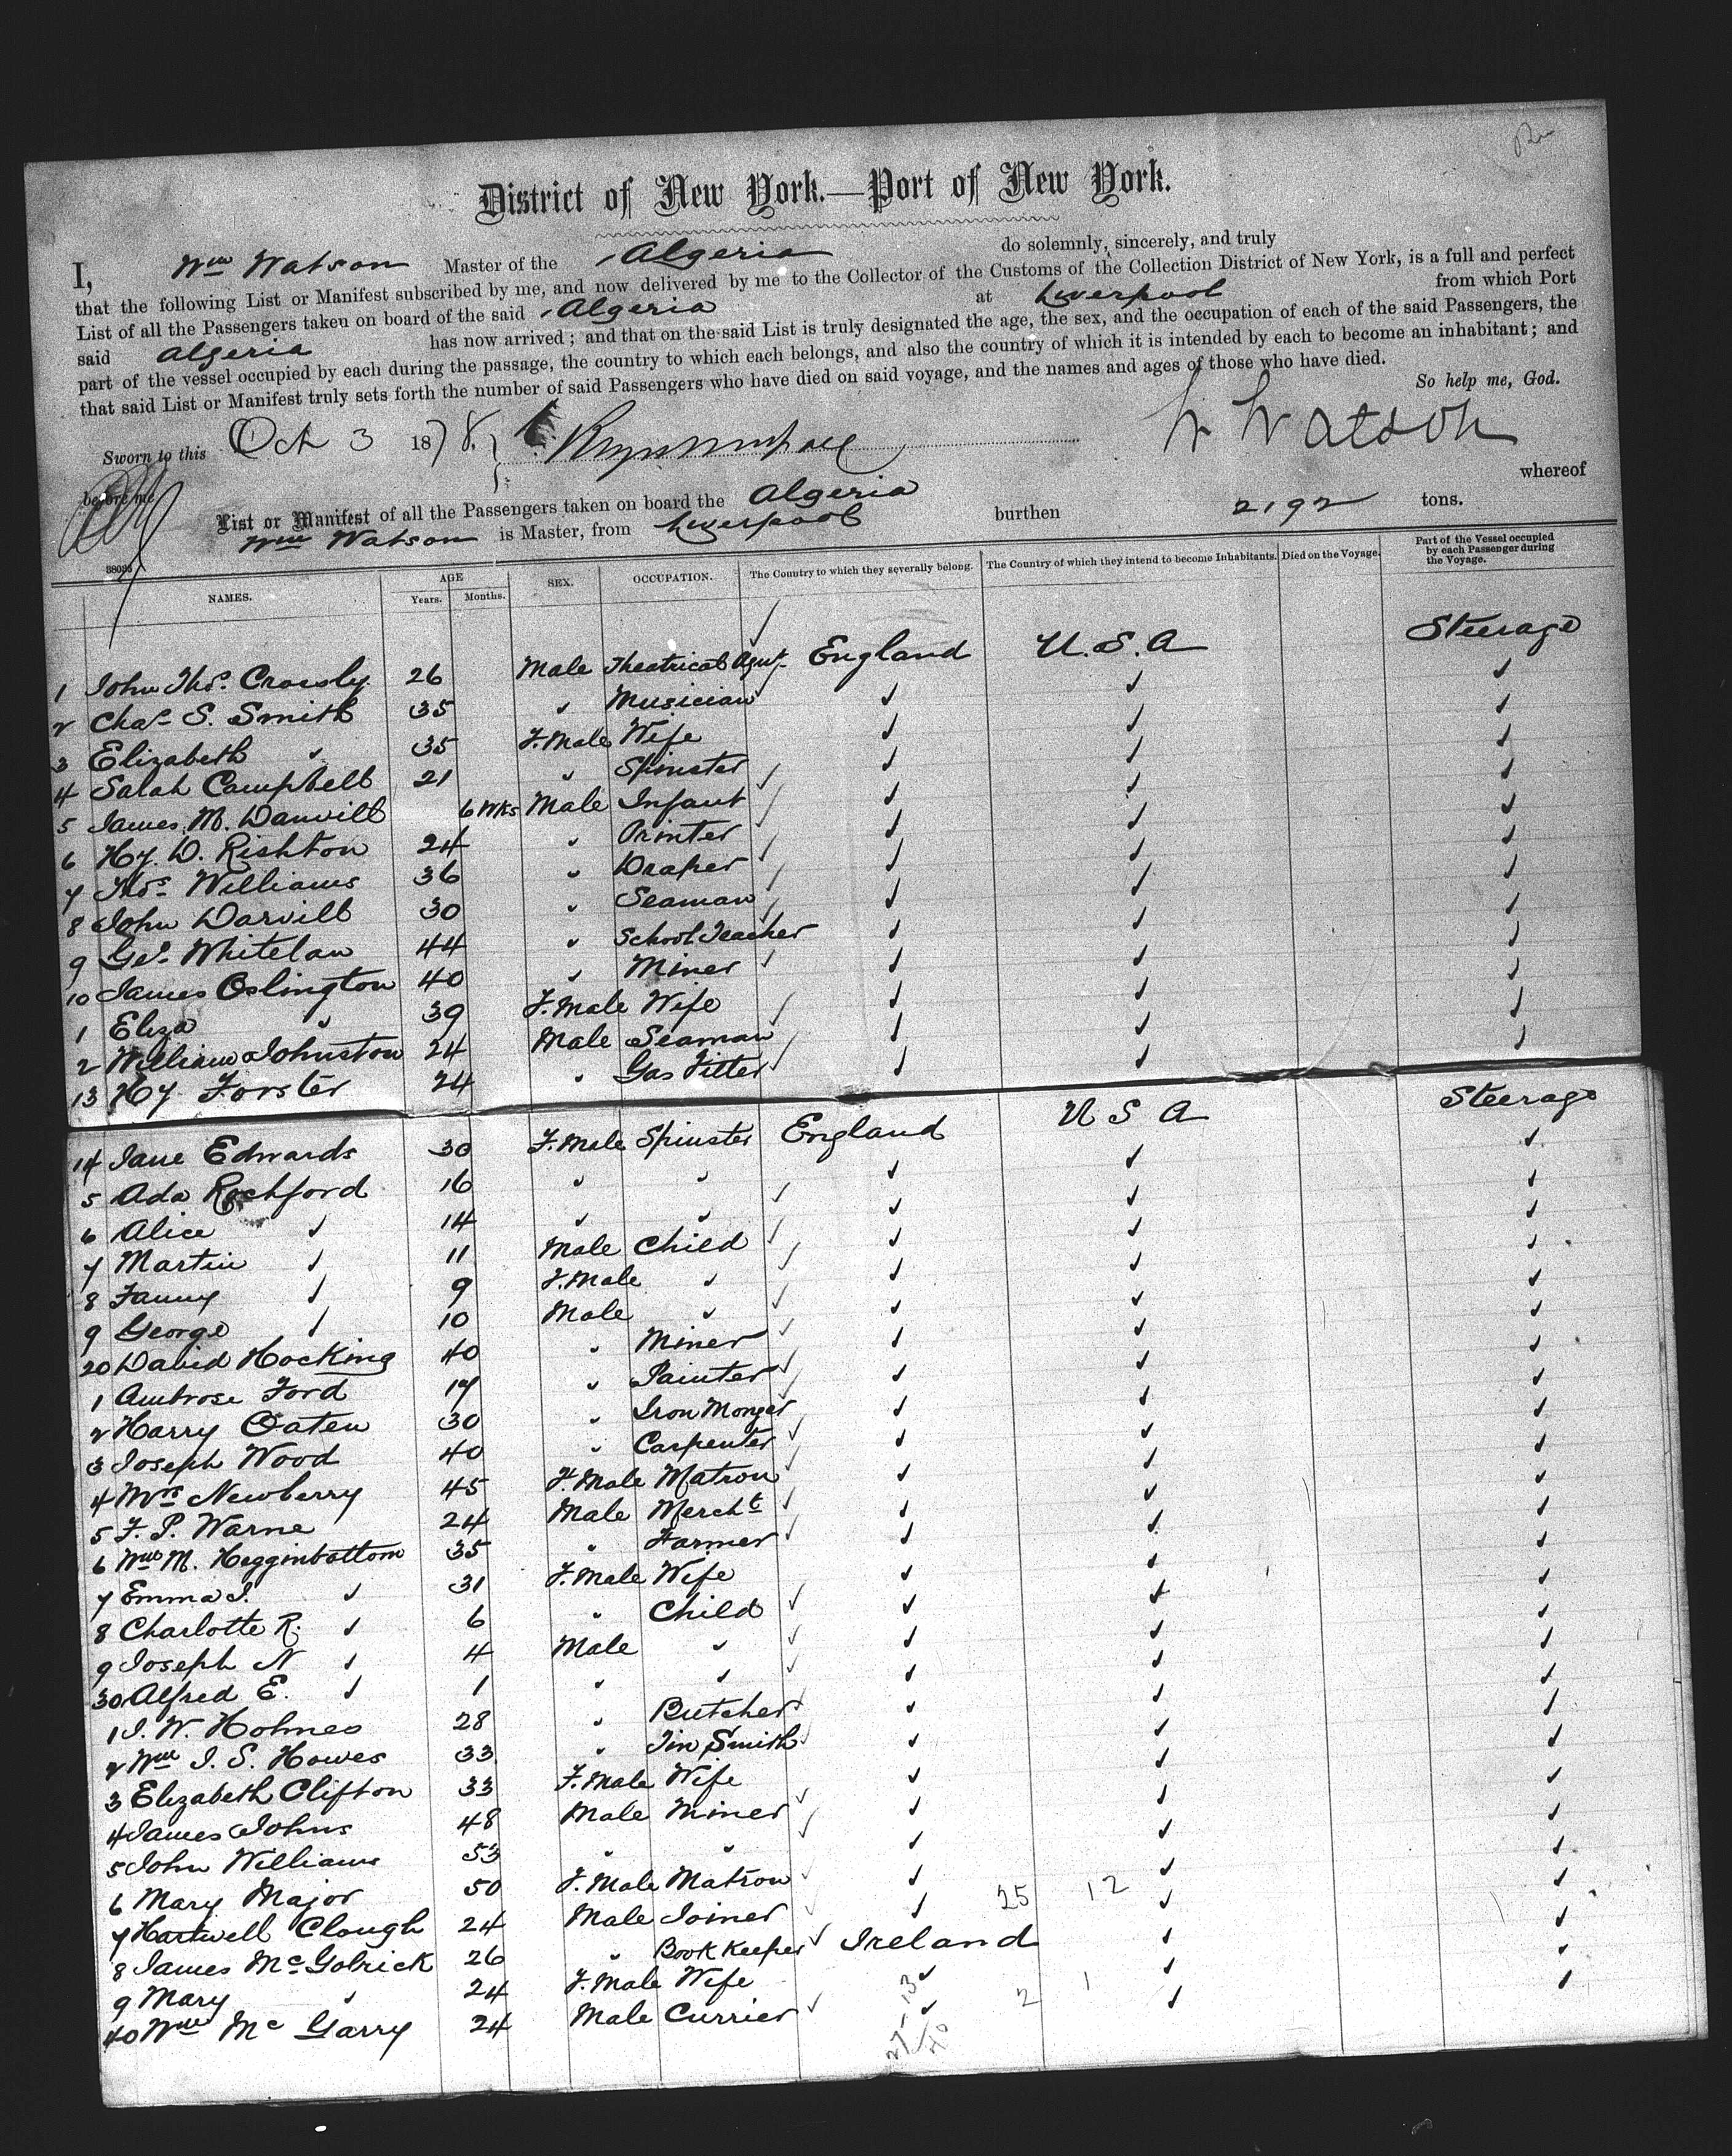 District of New York.—Port of New York.
I, Wm Watson Master of the Algeria do solemnly, sincerely, and truly
that the following List or Manifest subscribed by me, and now delivered by me to the Collector of the Customs of the Collection District of New York, is a full and perfect
List of all the Passengers taken on board of the said Algeria at Liverpool from which Port
said Algeria has now arrived; and that on the said List is truly designated the age, the sex, and the occupation of each of the said Passengers, the
part of the vessel occupied by each during the passage, the country to which each belongs, and also the country of which it is intended by each to become an inhabitant; and
that said List or Manifest truly sets forth the number of said Passengers who have died on said voyage, and the names and ages of those who have died.
So help me, God.
Sworn to this Oct 3 1878. W Watson
before me
List or Manifest of all the Passengers taken on board the Algeria whereof
Wm Watson is Master, from Liverpool burthen 2192 tons.
NAMES. AGE Years. Months. SEX. OCCUPATION. The Country to which they severally belong. The Country of which they intend to become Inhabitants. Died on the Voyage. Part of the Vessel occupied by each Passenger during the Voyage.
1 John Thos. Crossly 26 Male Theatrical Agnt England U.S.A Steerage
2 Chas. S. Smith 35 " Musician ✓ ✓ ✓
3 Elizabeth " 35 F.Male Wife ✓ ✓ ✓
4 Sarah Campbell 21 " Spinster ✓ ✓ ✓
5 James M. Danvill 6 Wks Male Infant ✓ ✓ ✓
6 Hy. D. Rishton 24 " Printer ✓ ✓ ✓
7 Thos. Williams 36 " Draper ✓ ✓ ✓
8 John Darvill 30 " Seaman ✓ ✓ ✓
9 Geo. Whitelaw 44 " School Teacher ✓ ✓ ✓
10 James Oslington 40 " Miner ✓ ✓ ✓
1 Eliza " 39 F.Male Wife ✓ ✓ ✓
2 William Johnston 24 Male Seaman ✓ ✓ ✓
13 Hy Forster 24 " Gas Fitter ✓ ✓ ✓
14 Jane Edwards 30 F.Male Spinster England U S A Steerage
5 Ada Rochford 16 " " ✓ ✓ ✓
6 Alice ✓ 14 " " ✓ ✓ ✓
7 Martin ✓ 11 Male Child ✓ ✓ ✓
8 Fanny ✓ 9 F.Male " ✓ ✓ ✓
9 George ✓ 10 Male " ✓ ✓ ✓
20 David Hocking 40 " Miner ✓ ✓ ✓
1 Ambrose Ford 17 " Painter ✓ ✓ ✓
2 Harry Oaten 30 " Iron Monger ✓ ✓ ✓
3 Joseph Wood 40 " Carpenter ✓ ✓ ✓
4 Mrs Newberry 45 F.Male Matron ✓ ✓ ✓
5 F. P. Warne 24 Male Mercht ✓ ✓ ✓
6 Wm M. Hegginbottom 35 " Farmer ✓ ✓ ✓
7 Emma J. ✓ 31 F.Male Wife ✓ ✓ ✓
8 Charlotte R. ✓ 6 " Child ✓ ✓ ✓
9 Joseph N ✓ 4 Male " ✓ ✓ ✓
30 Alfred E. ✓ 1 " " ✓ ✓ ✓
1 J. W. Holmes 28 " Butcher ✓ ✓ ✓
2 Wm J. S. Howes 33 " Tin Smith ✓ ✓ ✓
3 Elizabeth Clifton 33 F.Male Wife ✓ ✓ ✓
4 James Johns 48 Male Miner ✓ ✓ ✓
5 John Williams 53 " " ✓ ✓ ✓
6 Mary Major 50 F.Male Matron ✓ ✓ ✓
7 Hartwell Clough 24 Male Joiner ✓ 25 12 ✓ ✓
8 James McGolrick 26 " Book Keeper Ireland ✓ ✓
9 Mary " 24 F.Male Wife ✓ ✓ ✓
40 Wm Mc Garry 24 Male Currier ✓ 2 1 ✓ ✓
27-13
40